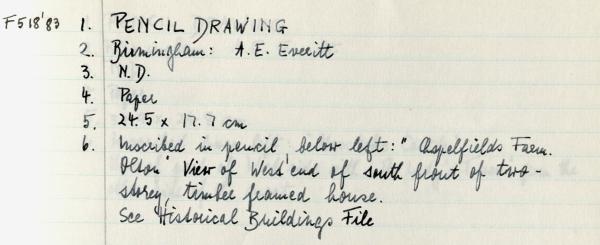 F518'83 1. PENCIL DRAWING
2. Birmingham: A.E. Everitt
3. N.D.
4. Paper
5. 24.5 x 17.7 cm
6. Inscribed in pencil below left: " Chapelfields Farm.
Olton" View of West end of south front of two-
storey, timber framed house.
See Historical Buildings File